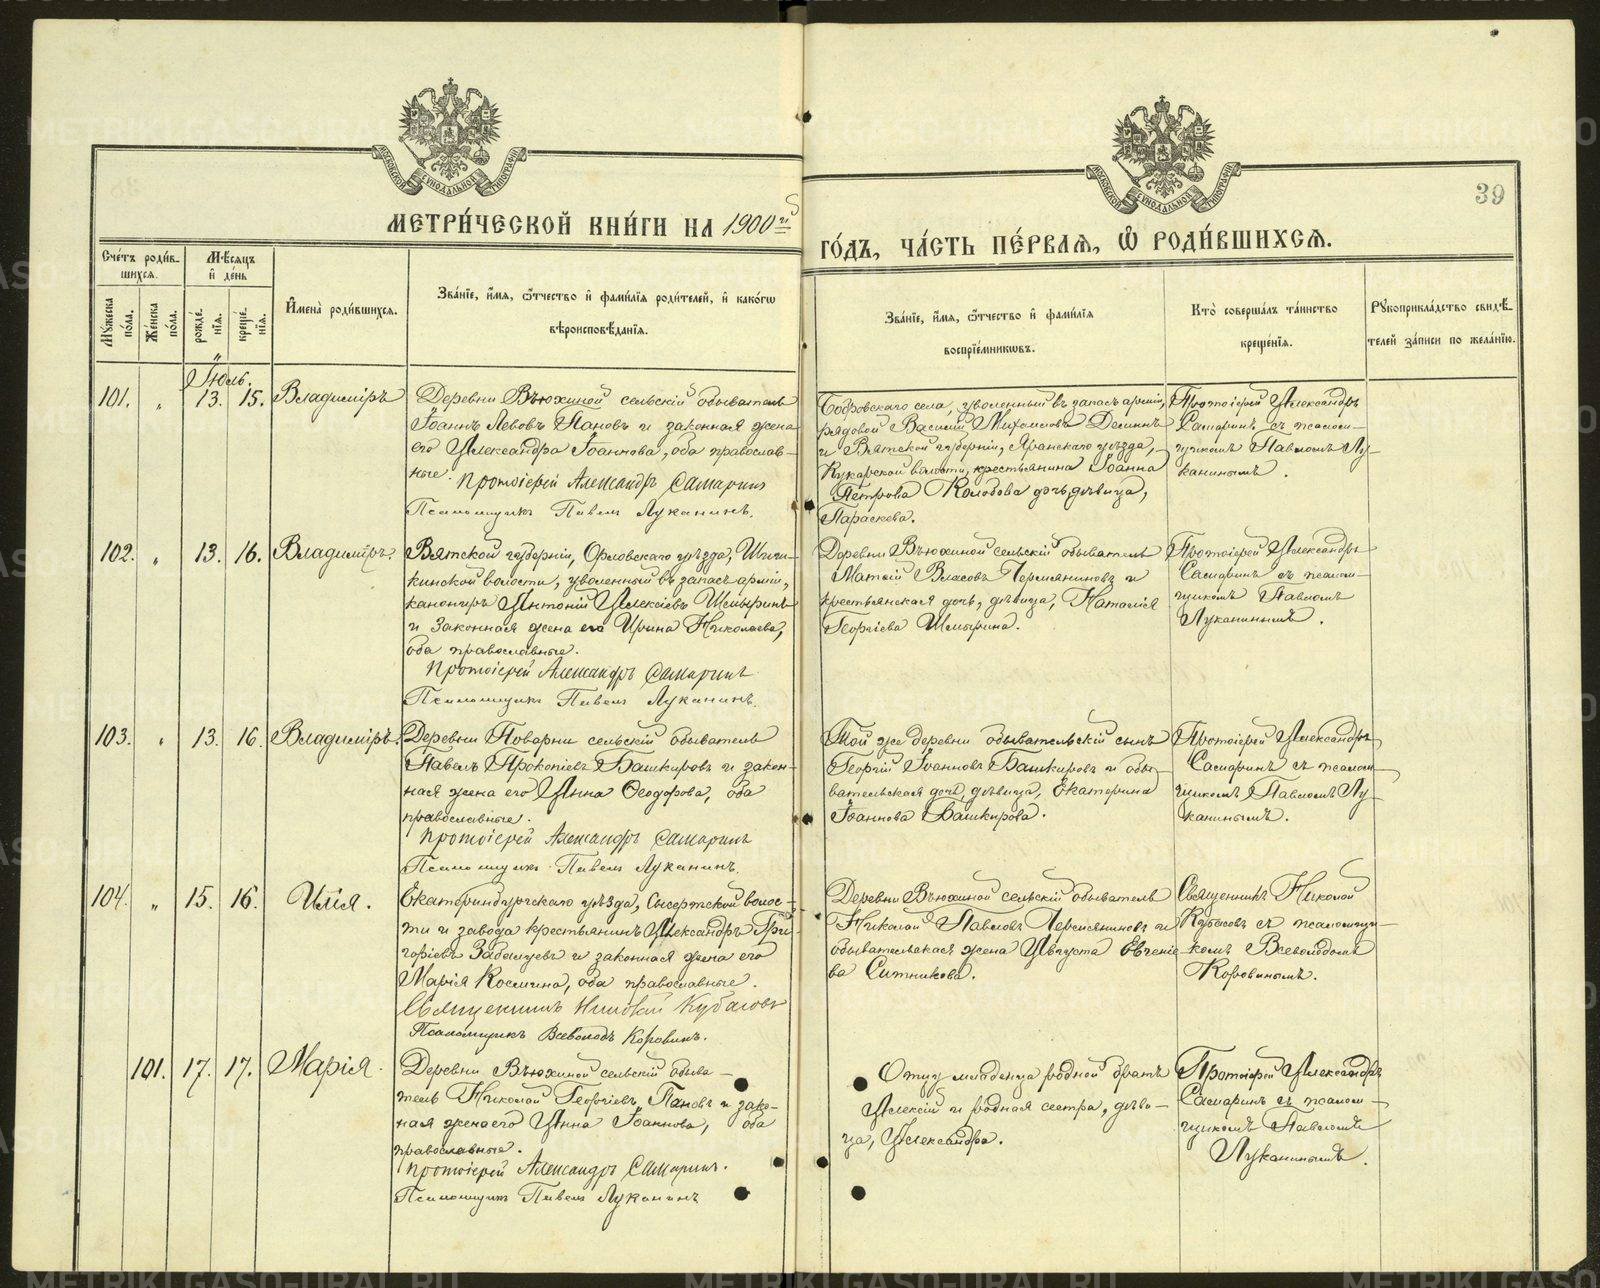 МОСКОВСКОЙ СѴНОДАЛЬНОЙ ТИПОГРАФІИ
МОСКОВСКОЙ СѴНОДАЛЬНОЙ ТИПОГРАФІИ
39
МЕТРИ́ЧЕСКОЙ КНИ́ГИ НА 1900 й
ГО́ДЪ, ЧА́СТЬ ПЕ́РВАѦ, Ѽ РОДИ́ВШИХСѦ.
Сче́тъ роди́в-
шихся.
Мѣ́сяцъ
и де́нь
Му́жеска по́ла.
Же́нска по́ла.
рожде́нія.
креще́нія.
Имена̀ роди́вшихся.
Зва́ніе, и́мя, ѻ́тчество и фами́лія роди́телей, и како́гѡ
вѣроисповѣ́данія.
Зва́ніе, и́мя, ѻ́тчество и фами́лія
воспріе́мниковъ.
Кто̀ соверша́лъ та́инство
креще́нія.
Рукоприкла́дство свидѣ́-
телей за́писи по жела́нію.
Іюль.
101. „ 13. 15. Владиміръ
Деревни Вьюхиной сельскій обыватель
Іоаннъ Левовъ Пановъ и законная жена
его Александра Іоаннова, оба православ-
ные.
Протоіерей Александръ Самаринъ
Псаломщикъ Павелъ Луканинъ.
Бобровскаго села, уволенный въ запасъ арміи,
рядовой Василій Михаиловъ Деминъ
и Вятской губерніи, Яранскаго уѣзда,
Кукарской волости, крестьянина Іоанна
Петрова Колобова дочь, дѣвица,
Параскева.
Протоіерей Александръ
Самаринъ съ псалом-
щикомъ Павломъ Лу-
канинымъ.
102. „ 13. 16. Владиміръ.
Вятской губерніи, Орловскаго уѣзда,
волости, уволенный въ запасъ арміи,
канониръ Антоній Алексіевъ Шмыринъ
и законная жена его Ирина Николаева,
оба православные.
Протоіерей Александръ Самаринъ
Псаломщикъ Павелъ Луканинъ.
Деревни Вьюхиной сельскій обыватель
Матѳій Власовъ Чермяниновъ и
крестьянская дочь, дѣвица, Наталія
Георгіева Шмырина.
Протоіерей Александръ
Самаринъ съ псалом-
щикомъ Павломъ
Луканинымъ.
103. „ 13. 16. Владиміръ.
Деревни Поварни сельскій обыватель
Павелъ Прокопіевъ Башкировъ и закон-
ная жена его Анна Ѳеодорова, оба
православные.
Протоіерей Александръ Самаринъ
Псаломщикъ Павелъ Луканинъ.
Той же деревни обывательскій сынъ
Георгій Іоанновъ Башкировъ и обы-
вательская дочь, дѣвица, Екатерина
Іоаннова Башкирова.
Протоіерей Александръ
Самаринъ съ псалом-
щикомъ Павломъ Лу-
канинымъ.
104. „ 15. 16. Илія.
Екатеринбургскаго уѣзда, Сысертской волос-
ти и завода крестьянинъ Александръ Гри-
горіевъ и законная жена его
Марія Космина, оба православные.
Священникъ Николай Кубасовъ
Псаломщикъ Всеволодъ Коровинъ.
Деревни Вьюхиной сельскій обыватель
Николай Павловъ Чермяниновъ и
обывательская жена Августа Евгеніе-
ва Ситникова.
Священникъ Николай
Кубасовъ съ псаломщи-
комъ Всеволодомъ
Коровинымъ.
101. 17. 17. Марія.
Деревни Вьюхиной сельскій обыва-
тель Николай Георгіевъ Пановъ и зако-
нная жена его Анна Іоаннова, оба
православные.
Протоіерей Александръ Самаринъ.
Псаломщикъ Павелъ Луканинъ
Отцу младенца родной братъ
Алексій и родная сестра, дѣви-
ца, Александра.
Протоіерей Александръ
Самаринъ съ псалом-
щикомъ Павломъ
Луканинымъ.
METRIKI.GASO-URAL.RU